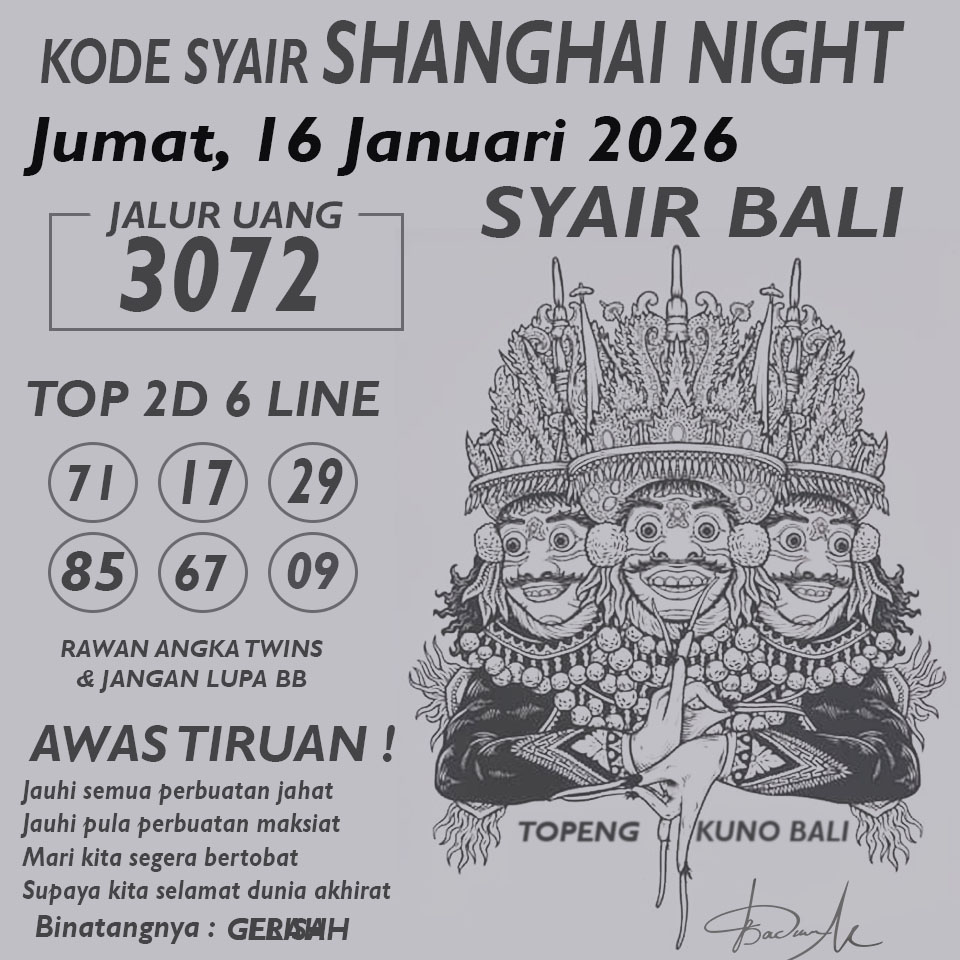 KODE SYAIR SHANGHAI NIGHT
Jumat, 16 Januari 2026
SYAIR BALI
JALUR UANG
3072
TOP 2D 6 LINE
71 17 29
85 67 09
RAWAN ANGKA TWINS
& JANGAN LUPA BB
AWAS TIRUAN !
Jauhi semua perbuatan jahat
Jauhi pula perbuatan maksiat
Mari kita segera bertobat
Supaya kita selamat dunia akhirat
Binatangnya :
TOPENG KUNO BALI